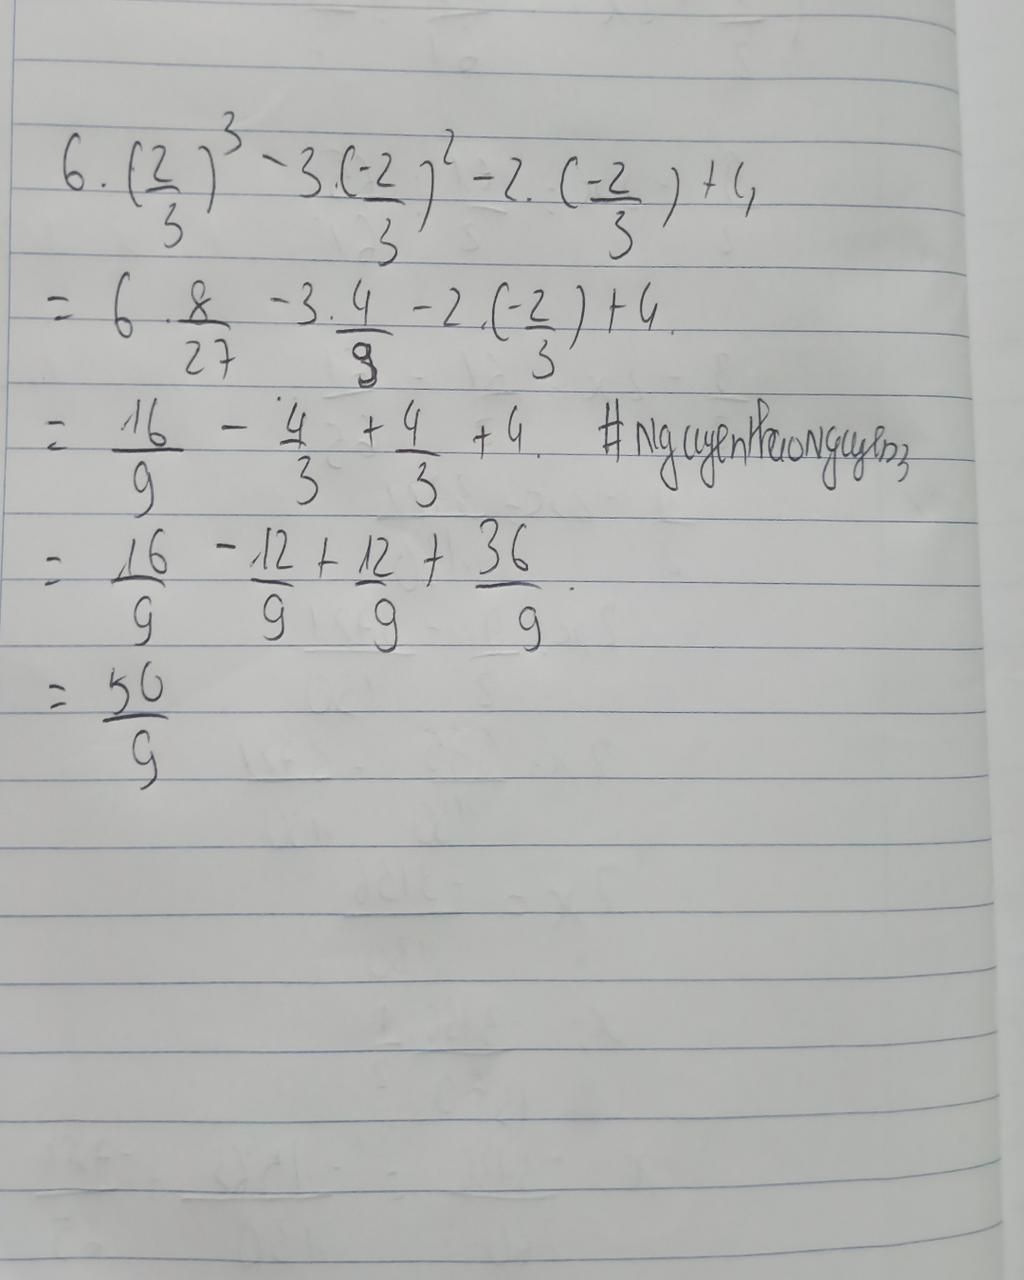 6.(2/3)^3 - 3.(-2/3)^2 - 2.(-2/3) + 4
= 6.8/27 - 3.4/9 - 2.(-2/3) + 4.
= 16/9 - 4/3 + 4/3 + 4. #NguyenHaoNguyen3
= 16/9 - 12/9 + 12/9 + 36/9.
= 50/9